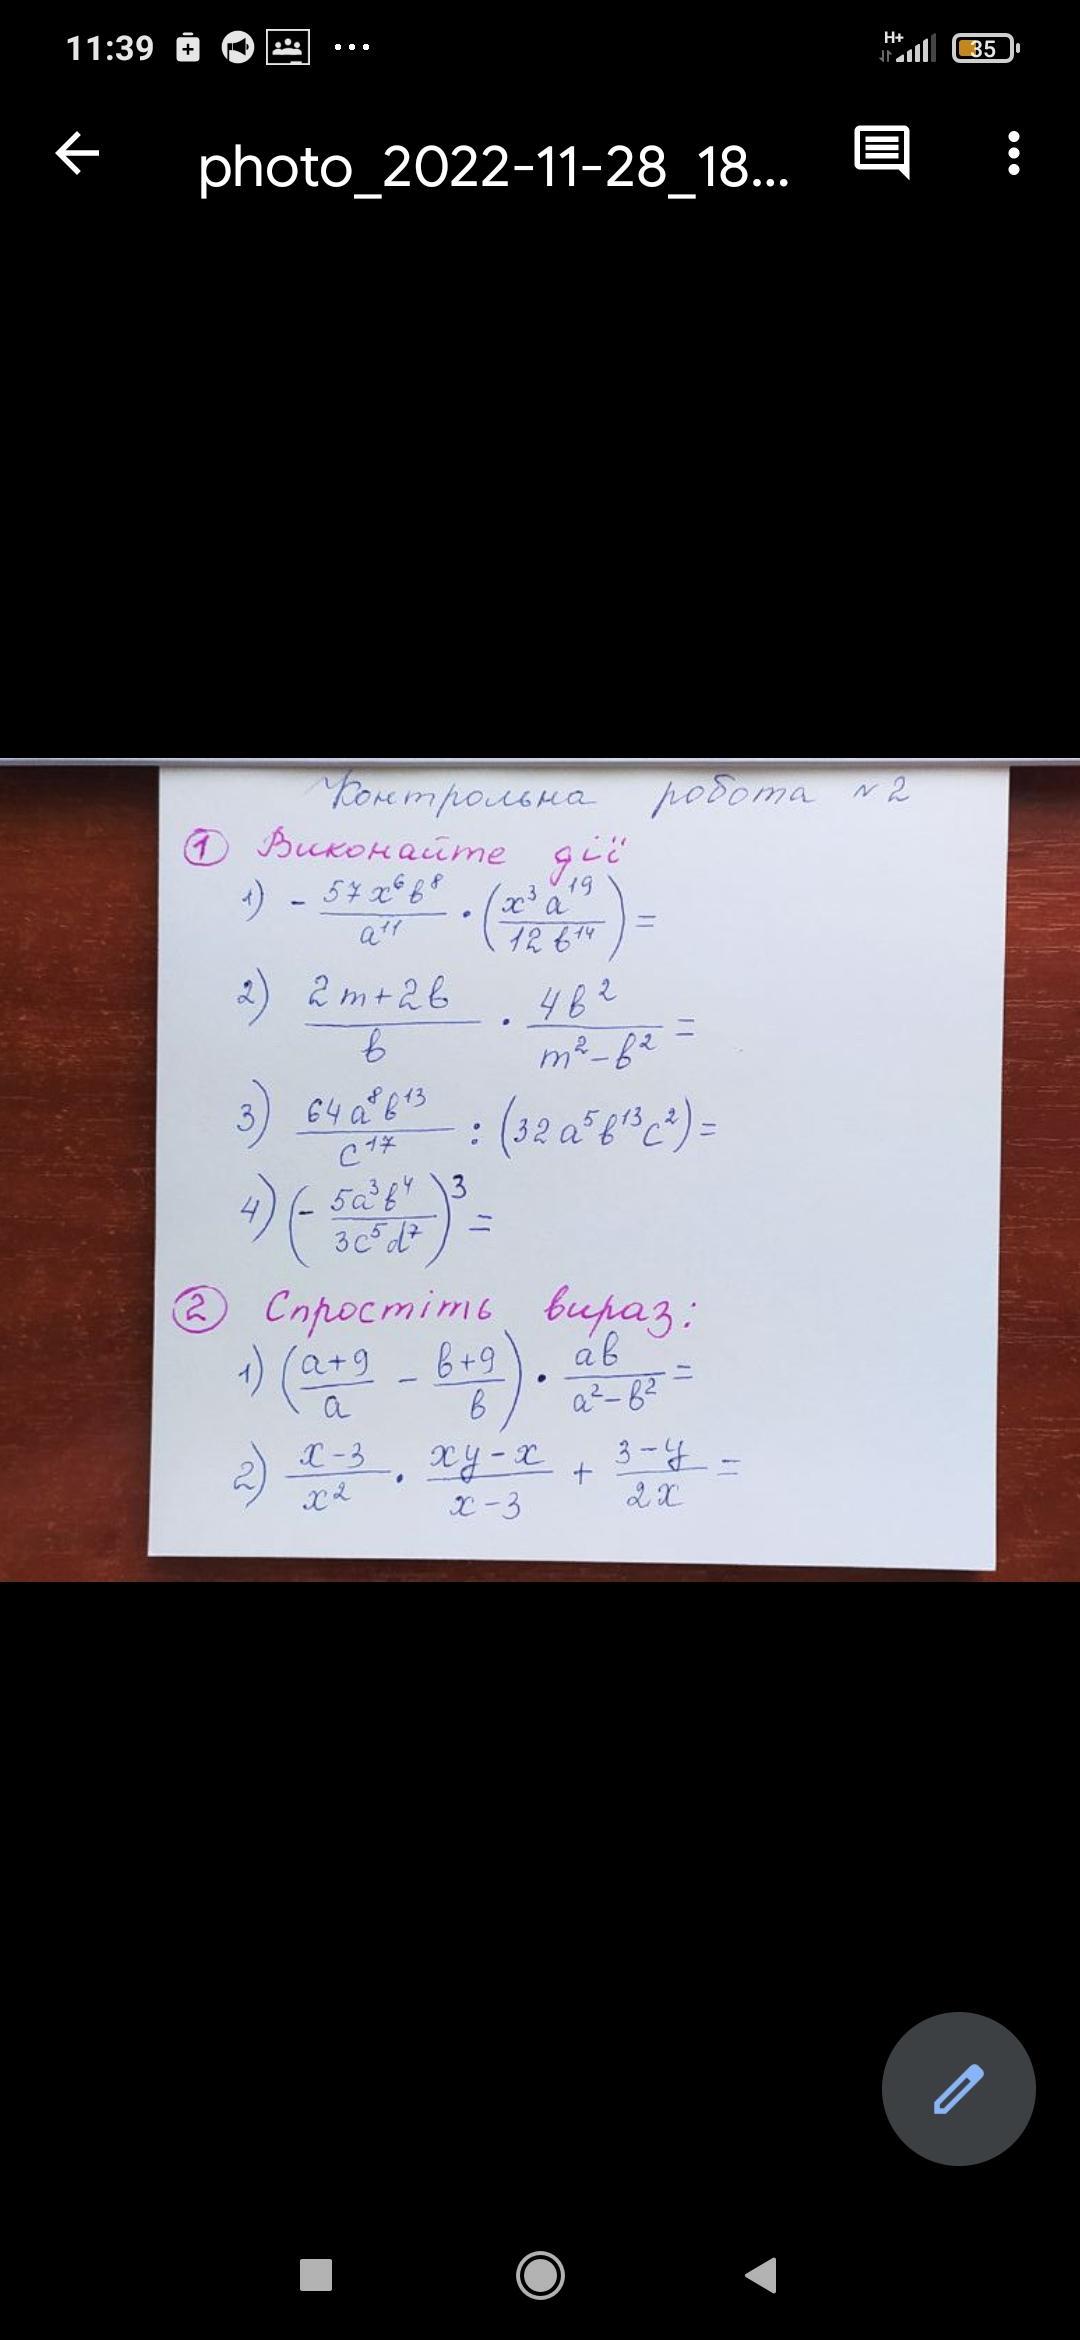 11:39 ... H+ 35
photo_2022-11-28_18...
Контрольна робота №2
① Виконайте дії
1) - 57x⁶b⁸/a¹¹ · (x³a¹⁹/12b¹⁴) =
2) 2m+2b/b · 4b²/m²-b² =
3) 64a⁸b¹³/c¹⁷ : (32a⁵b¹³c²) =
4) (- 5a³b⁴/3c⁵d⁷)³ =
② Спростіть вираз:
1) (a+9/a - b+9/b) · ab/a²-b² =
2) x-3/x² · xy-x/x-3 + 3-y/2x =